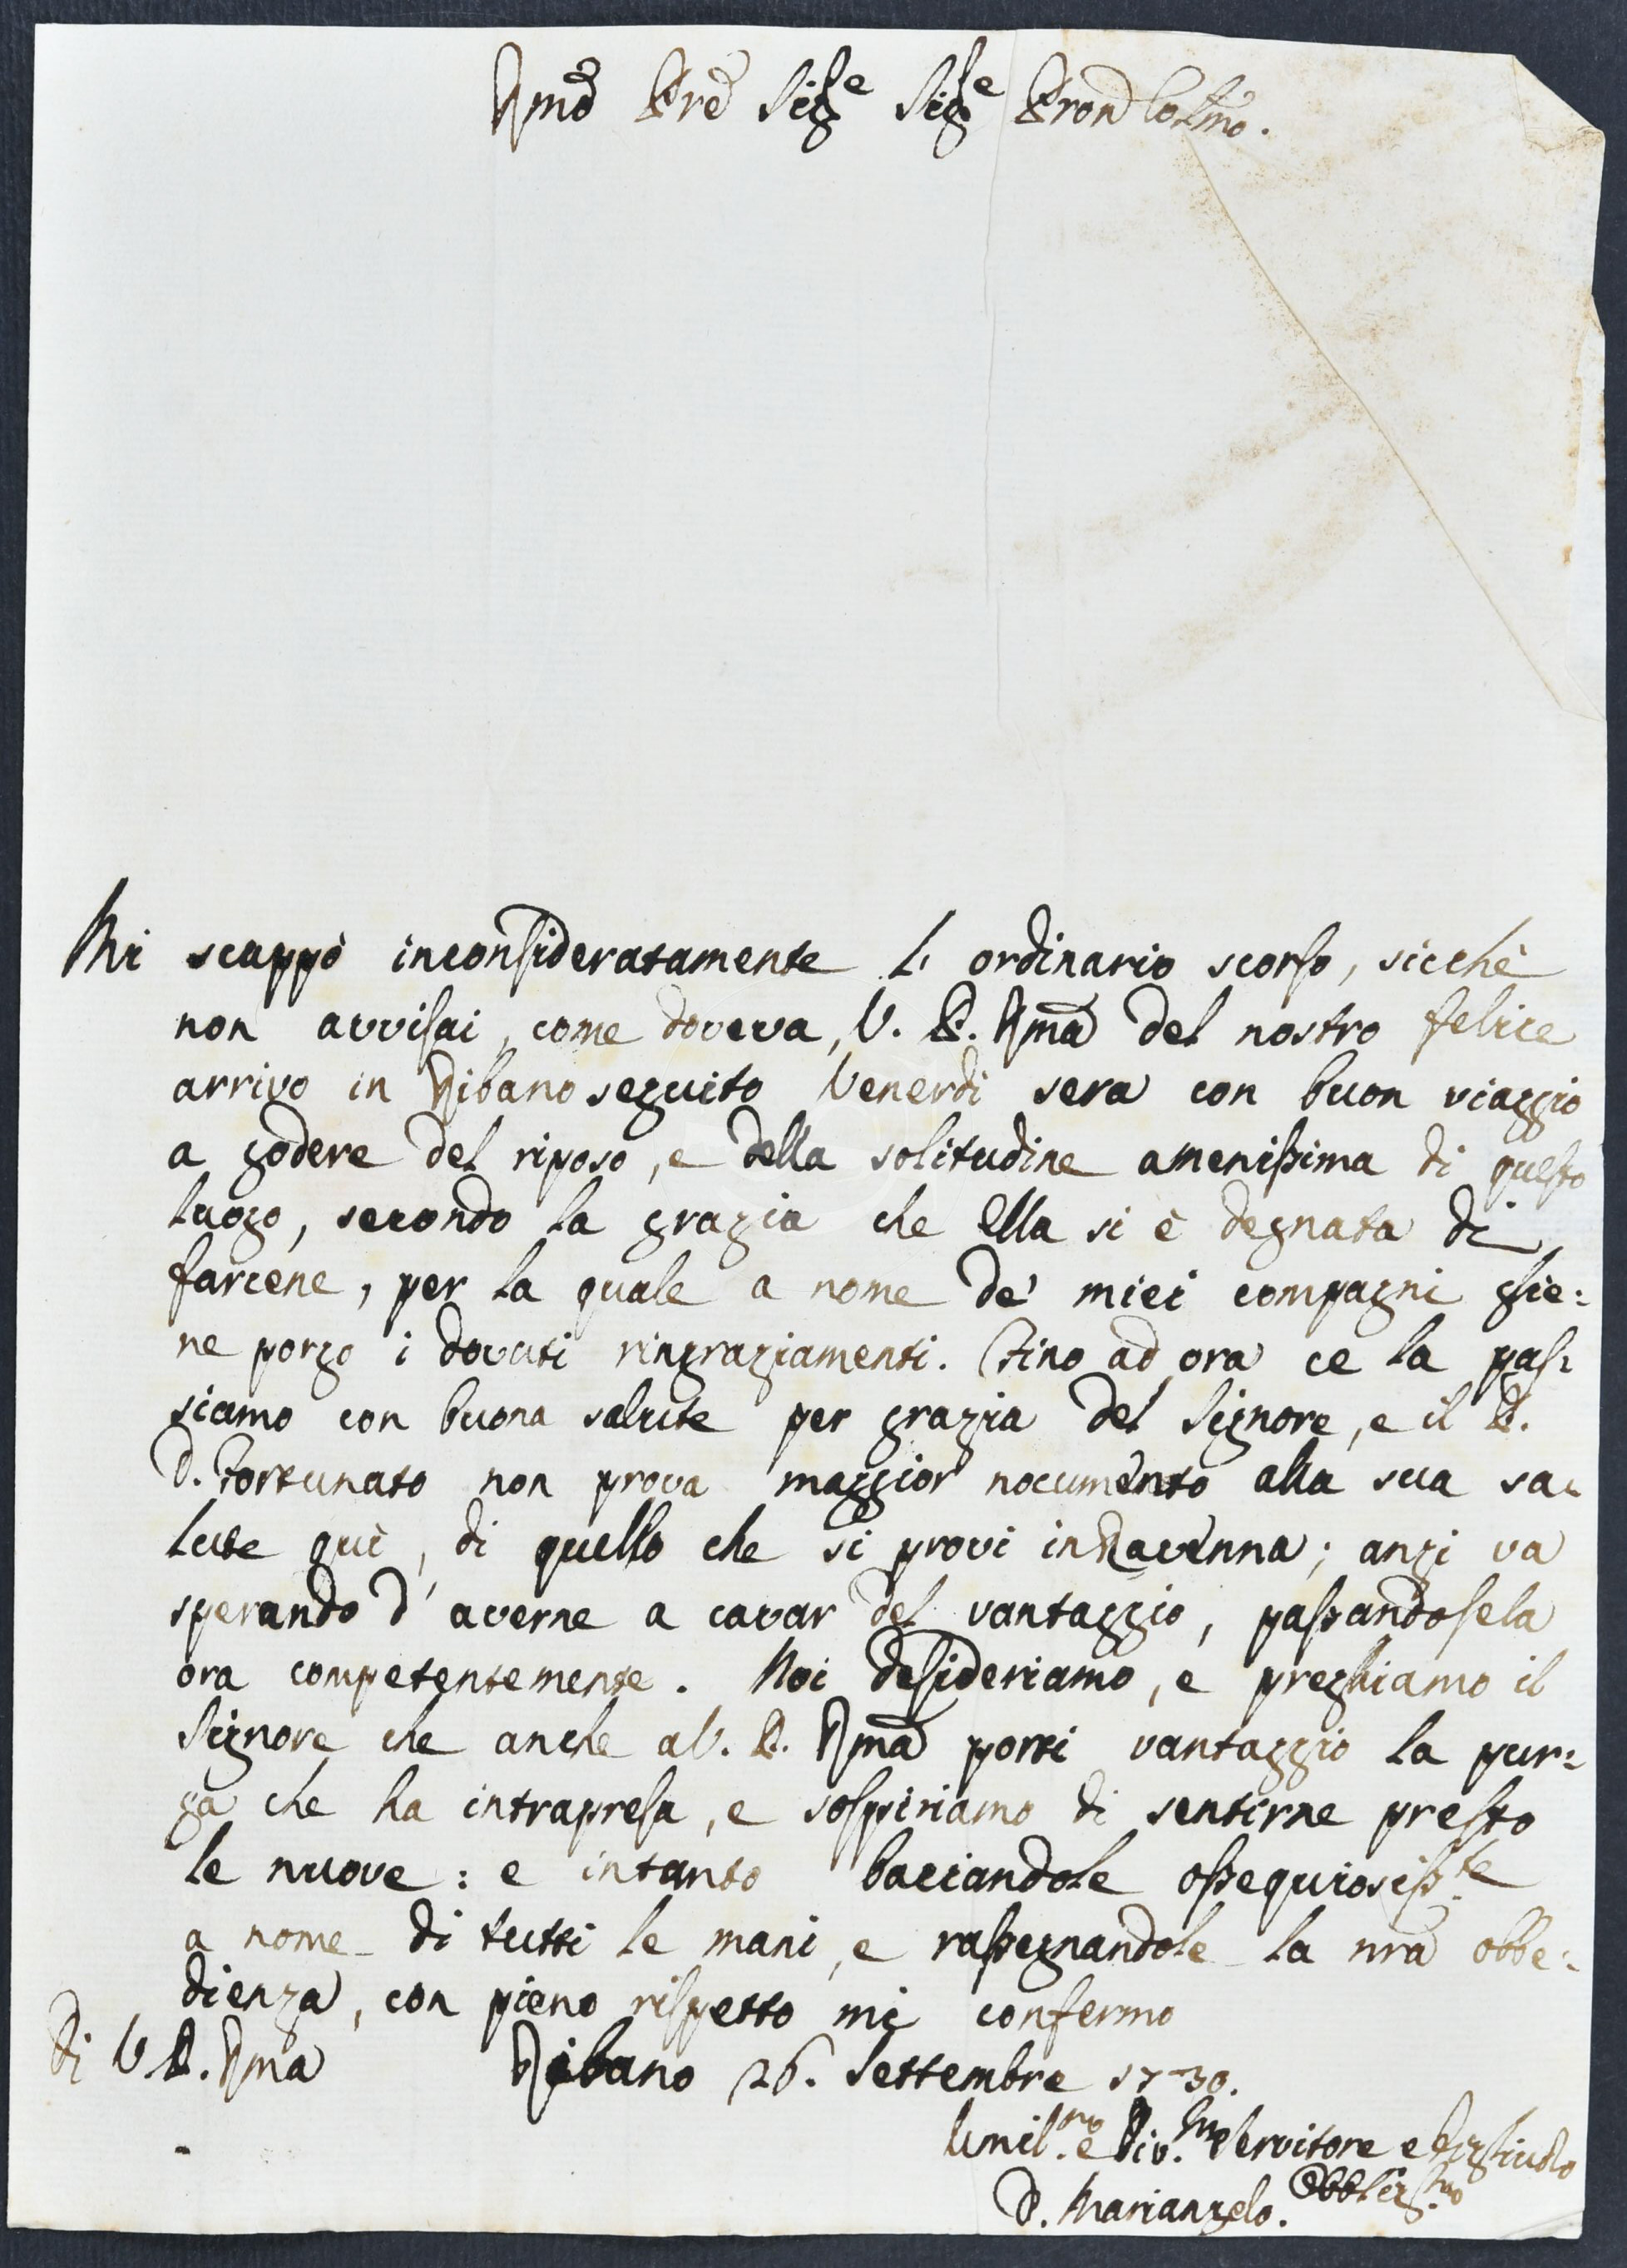 Rmo Pre Sigre Sigre Pron Colmo.
Mi scappò inconsideratamente l' ordinario scorso, sicchè
non avvisai, come doveva, V. P. Rma del nostro felice
arrivo in Ribano seguito Venerdì sera con buon viaggio
a godere del riposo, e della solitudine amenissima di questo
luogo, secondo la grazia che Ella si è degnata di
farcene, per la quale a nome de' miei compagni glie:
ne porgo i dovuti ringraziamenti. Fino ad ora ce la pas:
siamo con buona salute per grazia del Signore, e il P.
D. Fortunato non prova maggior nocumento alla sua sa:
lute quì, di quello che si provi in Ravenna; anzi va
sperando d' averne a cavar del vantaggio, passandosela
ora competentemente. Noi desideriamo, e preghiamo il
Signore che anche a V. P. Rma porti vantaggio la pur:
ga che ha intrapresa, e sospiriamo di sentirne presto
le nuove: e intanto baciandole ossequiosisste
a nome di tutti le mani, e rassegnandole la nra obbe:
dienza, con pieno rispetto mi confermo
Di V. P. Rma Ribano 26. Settembre 1730.
Umilmo e Divmo Servitore e Figliuolo
Obbligmo
D. Mariangelo.